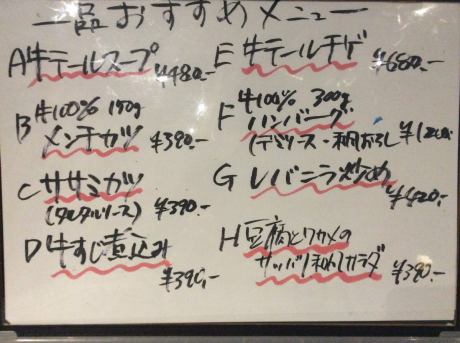 一品おすすめメニュー
A牛テールスープ
¥480.-
B牛100% 150g
メンチカツ ¥390.-
Cササミカツ
(タルタルソース) ¥390.-
D牛すじ煮込み
¥390.-
E牛テールチゲ
¥680.-
F牛100% 300g
ハンバーグ
(デミソース・和風おろし
Gレバニラ炒め
¥420.-
H豆腐とワカメの
サッパリ和風サラダ
¥390.-